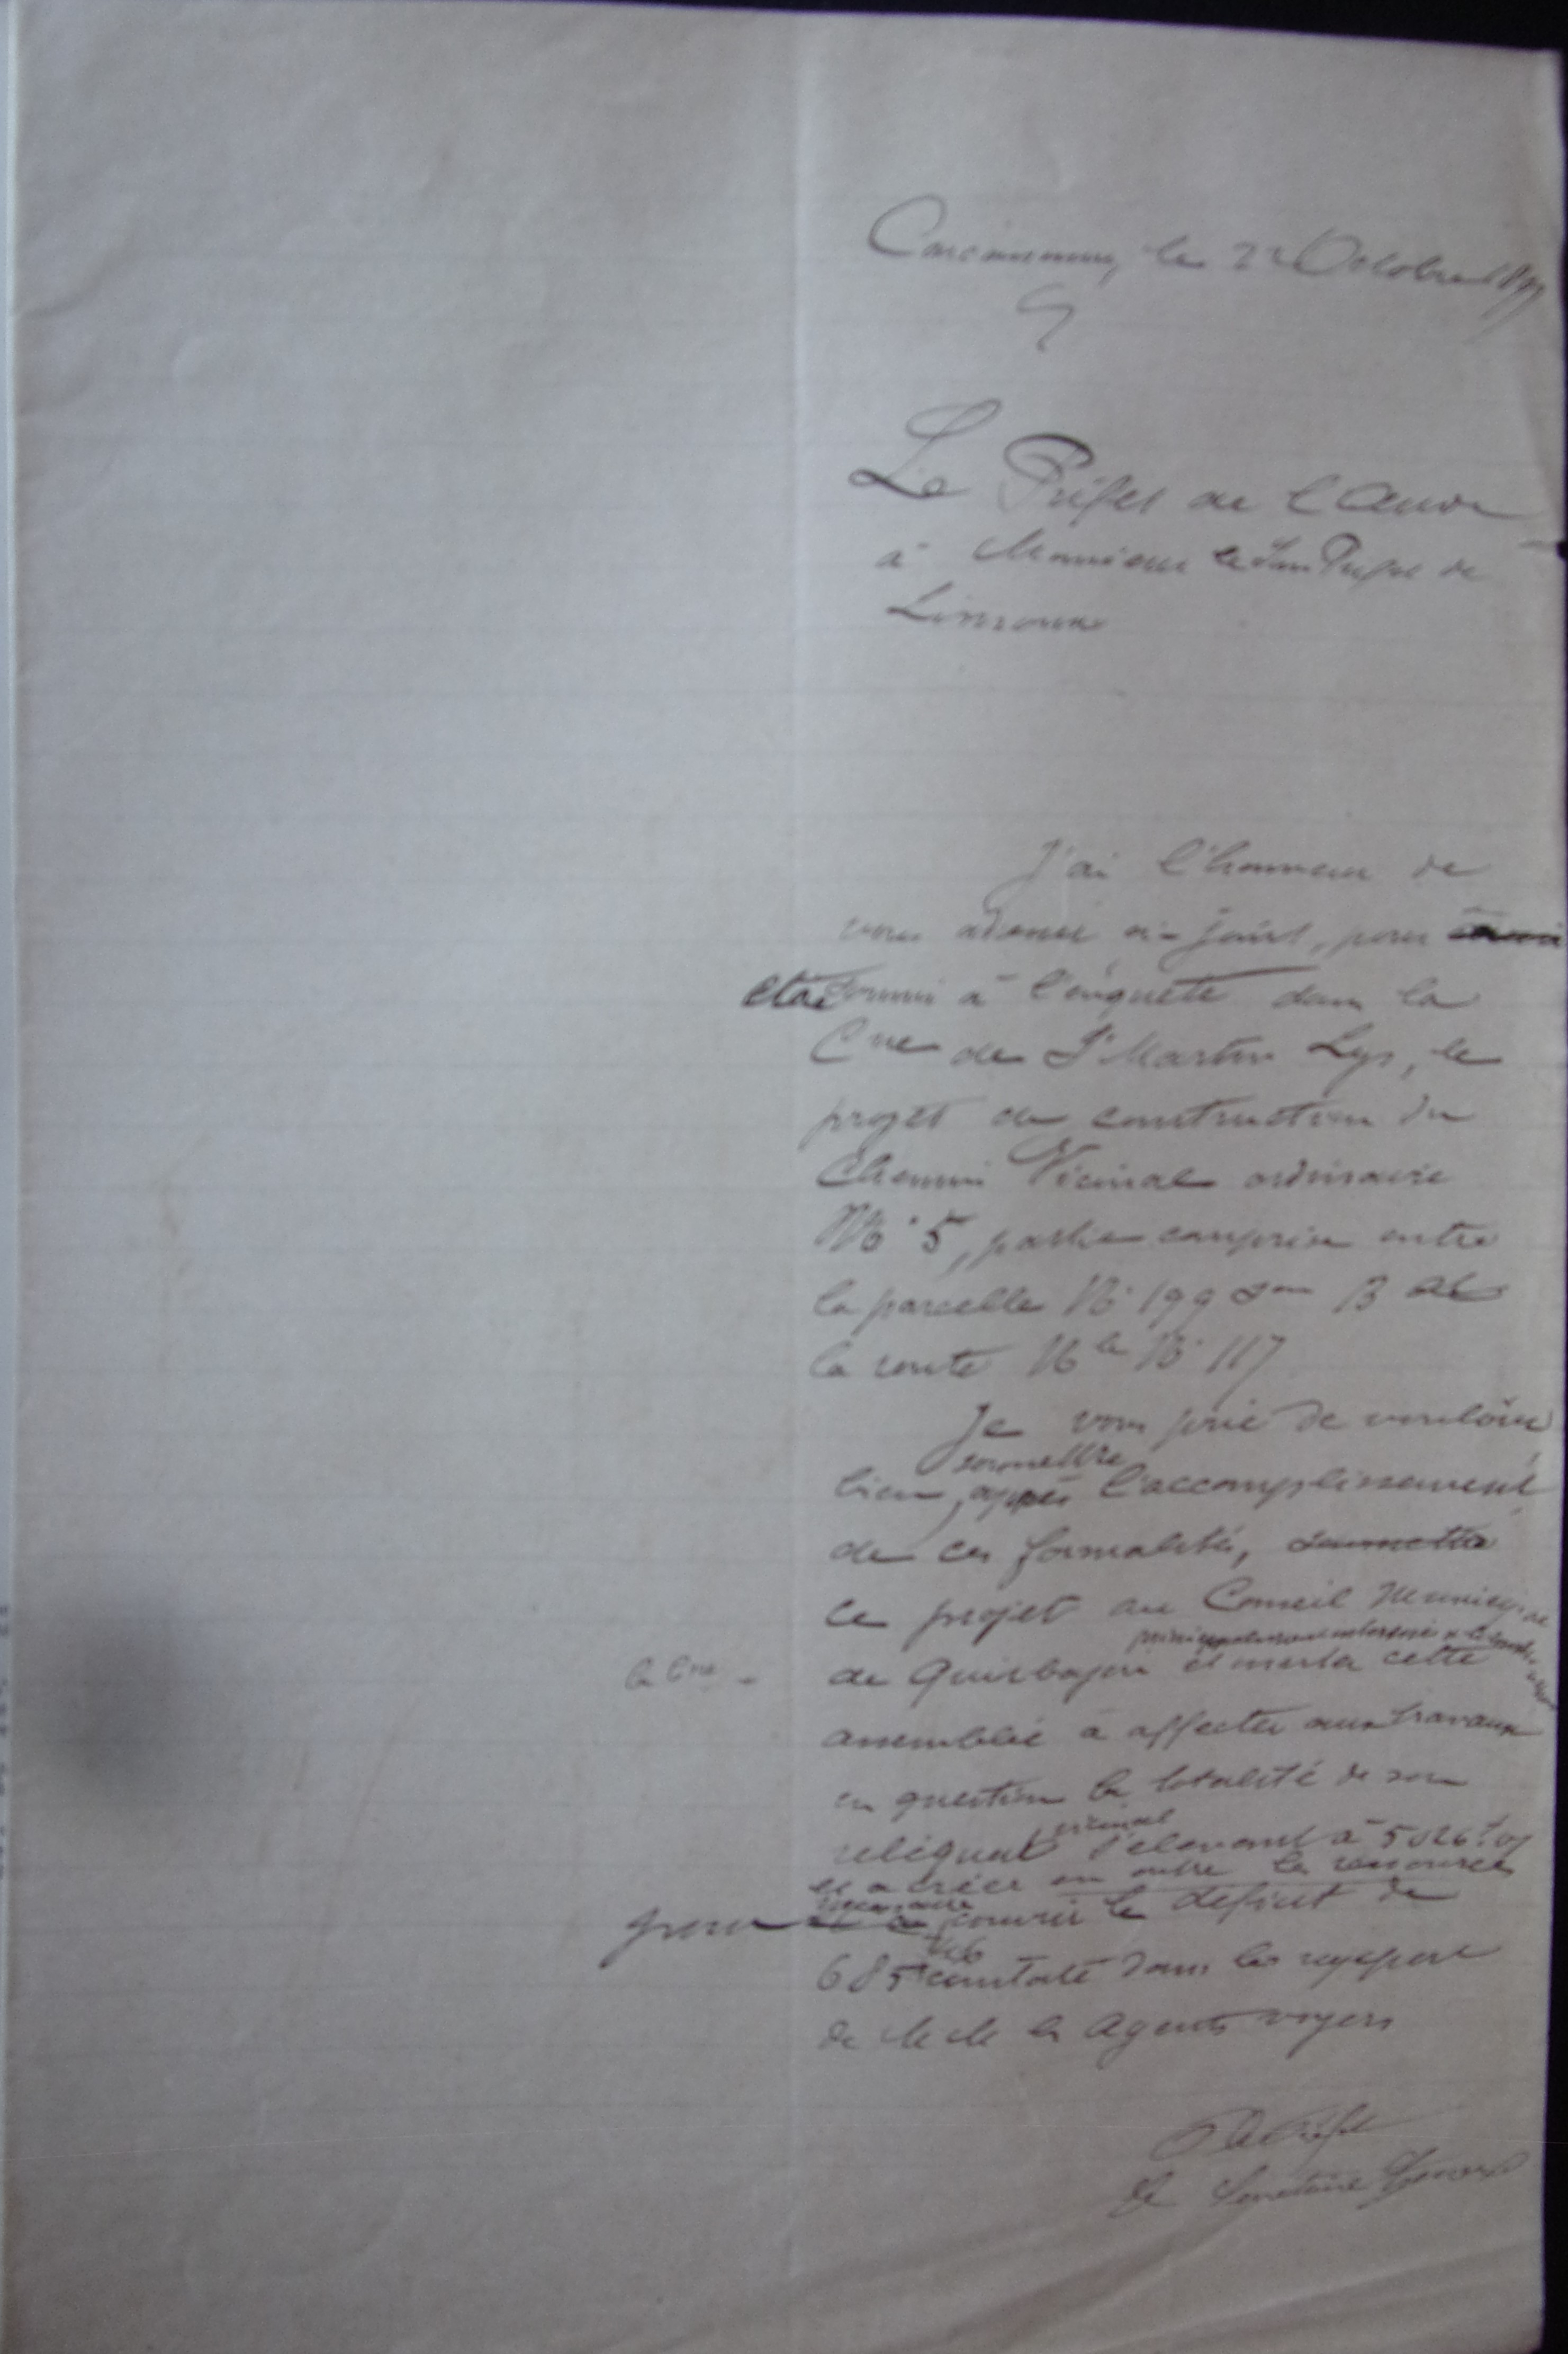 Carcassonne, le 22 Octobre
Le Préfet de l'Aude
à Monsieur le Sous Préfet de
Limoux
J'ai l'honneur de
vous adresser ci-joint, pour
être soumis à l'enquête dans la
Cne de St Martin Lys, le
projet de construction du
Chemin Vicinal ordinaire
No 5, partie comprise entre
la parcelle No 199 Son B et
la route Nle No 117
Je vous prie de vouloir
soumettre
bien, après l'accomplissement
de ces formalités, soumettre
ce projet au Conseil Municipal
principalement intéressé
la Cne
de Quirbajou et inviter cette
assemblée à affecter aux travaux
en question la totalité de son
vicinal
reliquat s'élevant à 5026f
et à créer en outre les ressources
nécessaires
pour couvrir le déficit de
685f constaté dans le rapport
de MM les Agents voyers
P le Préfet
Le Secrétaire Général